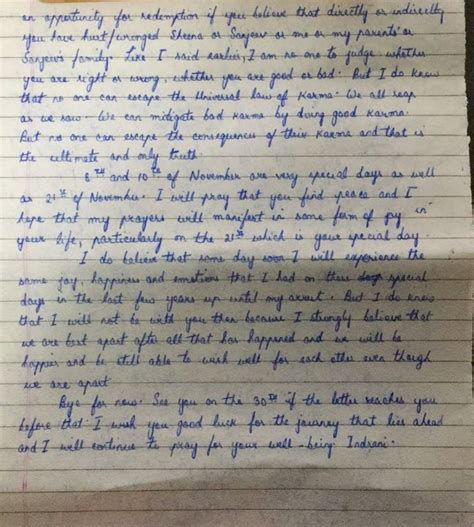 an opportunity for redemption if you believe that directly or indirectly
you have hurt/wronged Sheena or Sanjeev or me or my parents' or
Sanjeev's family. Like I said earlier, I am no one to judge whether
you are right or wrong, whether you are good or bad. But I do know
that no one can escape the Universal law of Karma. We all reap
as we sow. We can mitigate bad karma by doing good karma.
But no one can escape the consequences of their Karma and that is
the ultimate and only truth.
8th and 10th of November are very special days as well
as 21st of November. I will pray that you find peace and I
hope that my prayers will manifest in some form of joy in
your life, particularly on the 21st which is your special day.
I do believe that some day soon I will experience the
same joy, happiness and emotions that I had on these special
days in the last few years up until my arrest. But I do know
that I will not be with you then because I strongly believe that
we are best apart after all that has happened and we will be
happier and be still able to wish well for each other even though
we are apart.
Bye for now. See you on the 30th if the letter reaches you
before that. I wish you good luck for the journey that lies ahead
and I will continue to pray for your well-being Indrani.